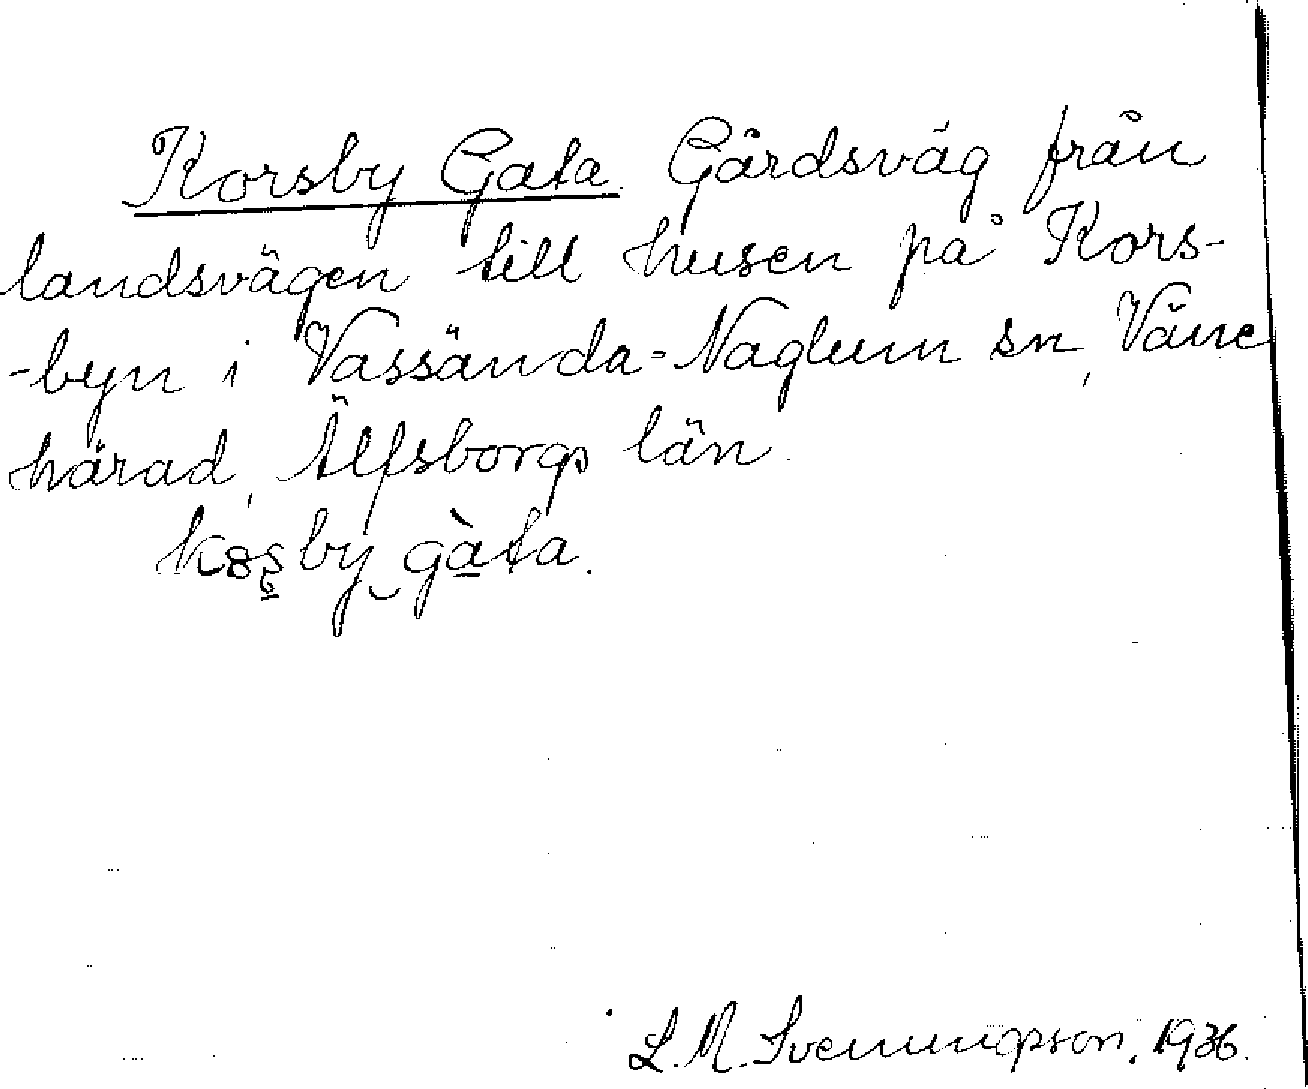 Korsby Gata. Gårdsväg från
landsvägen till husen på Kors-
-byn i Vassända-Naglum sn, Väne
härad, Älfsborgs län.
by gàta.
L. M. Svenungsson. 1936.